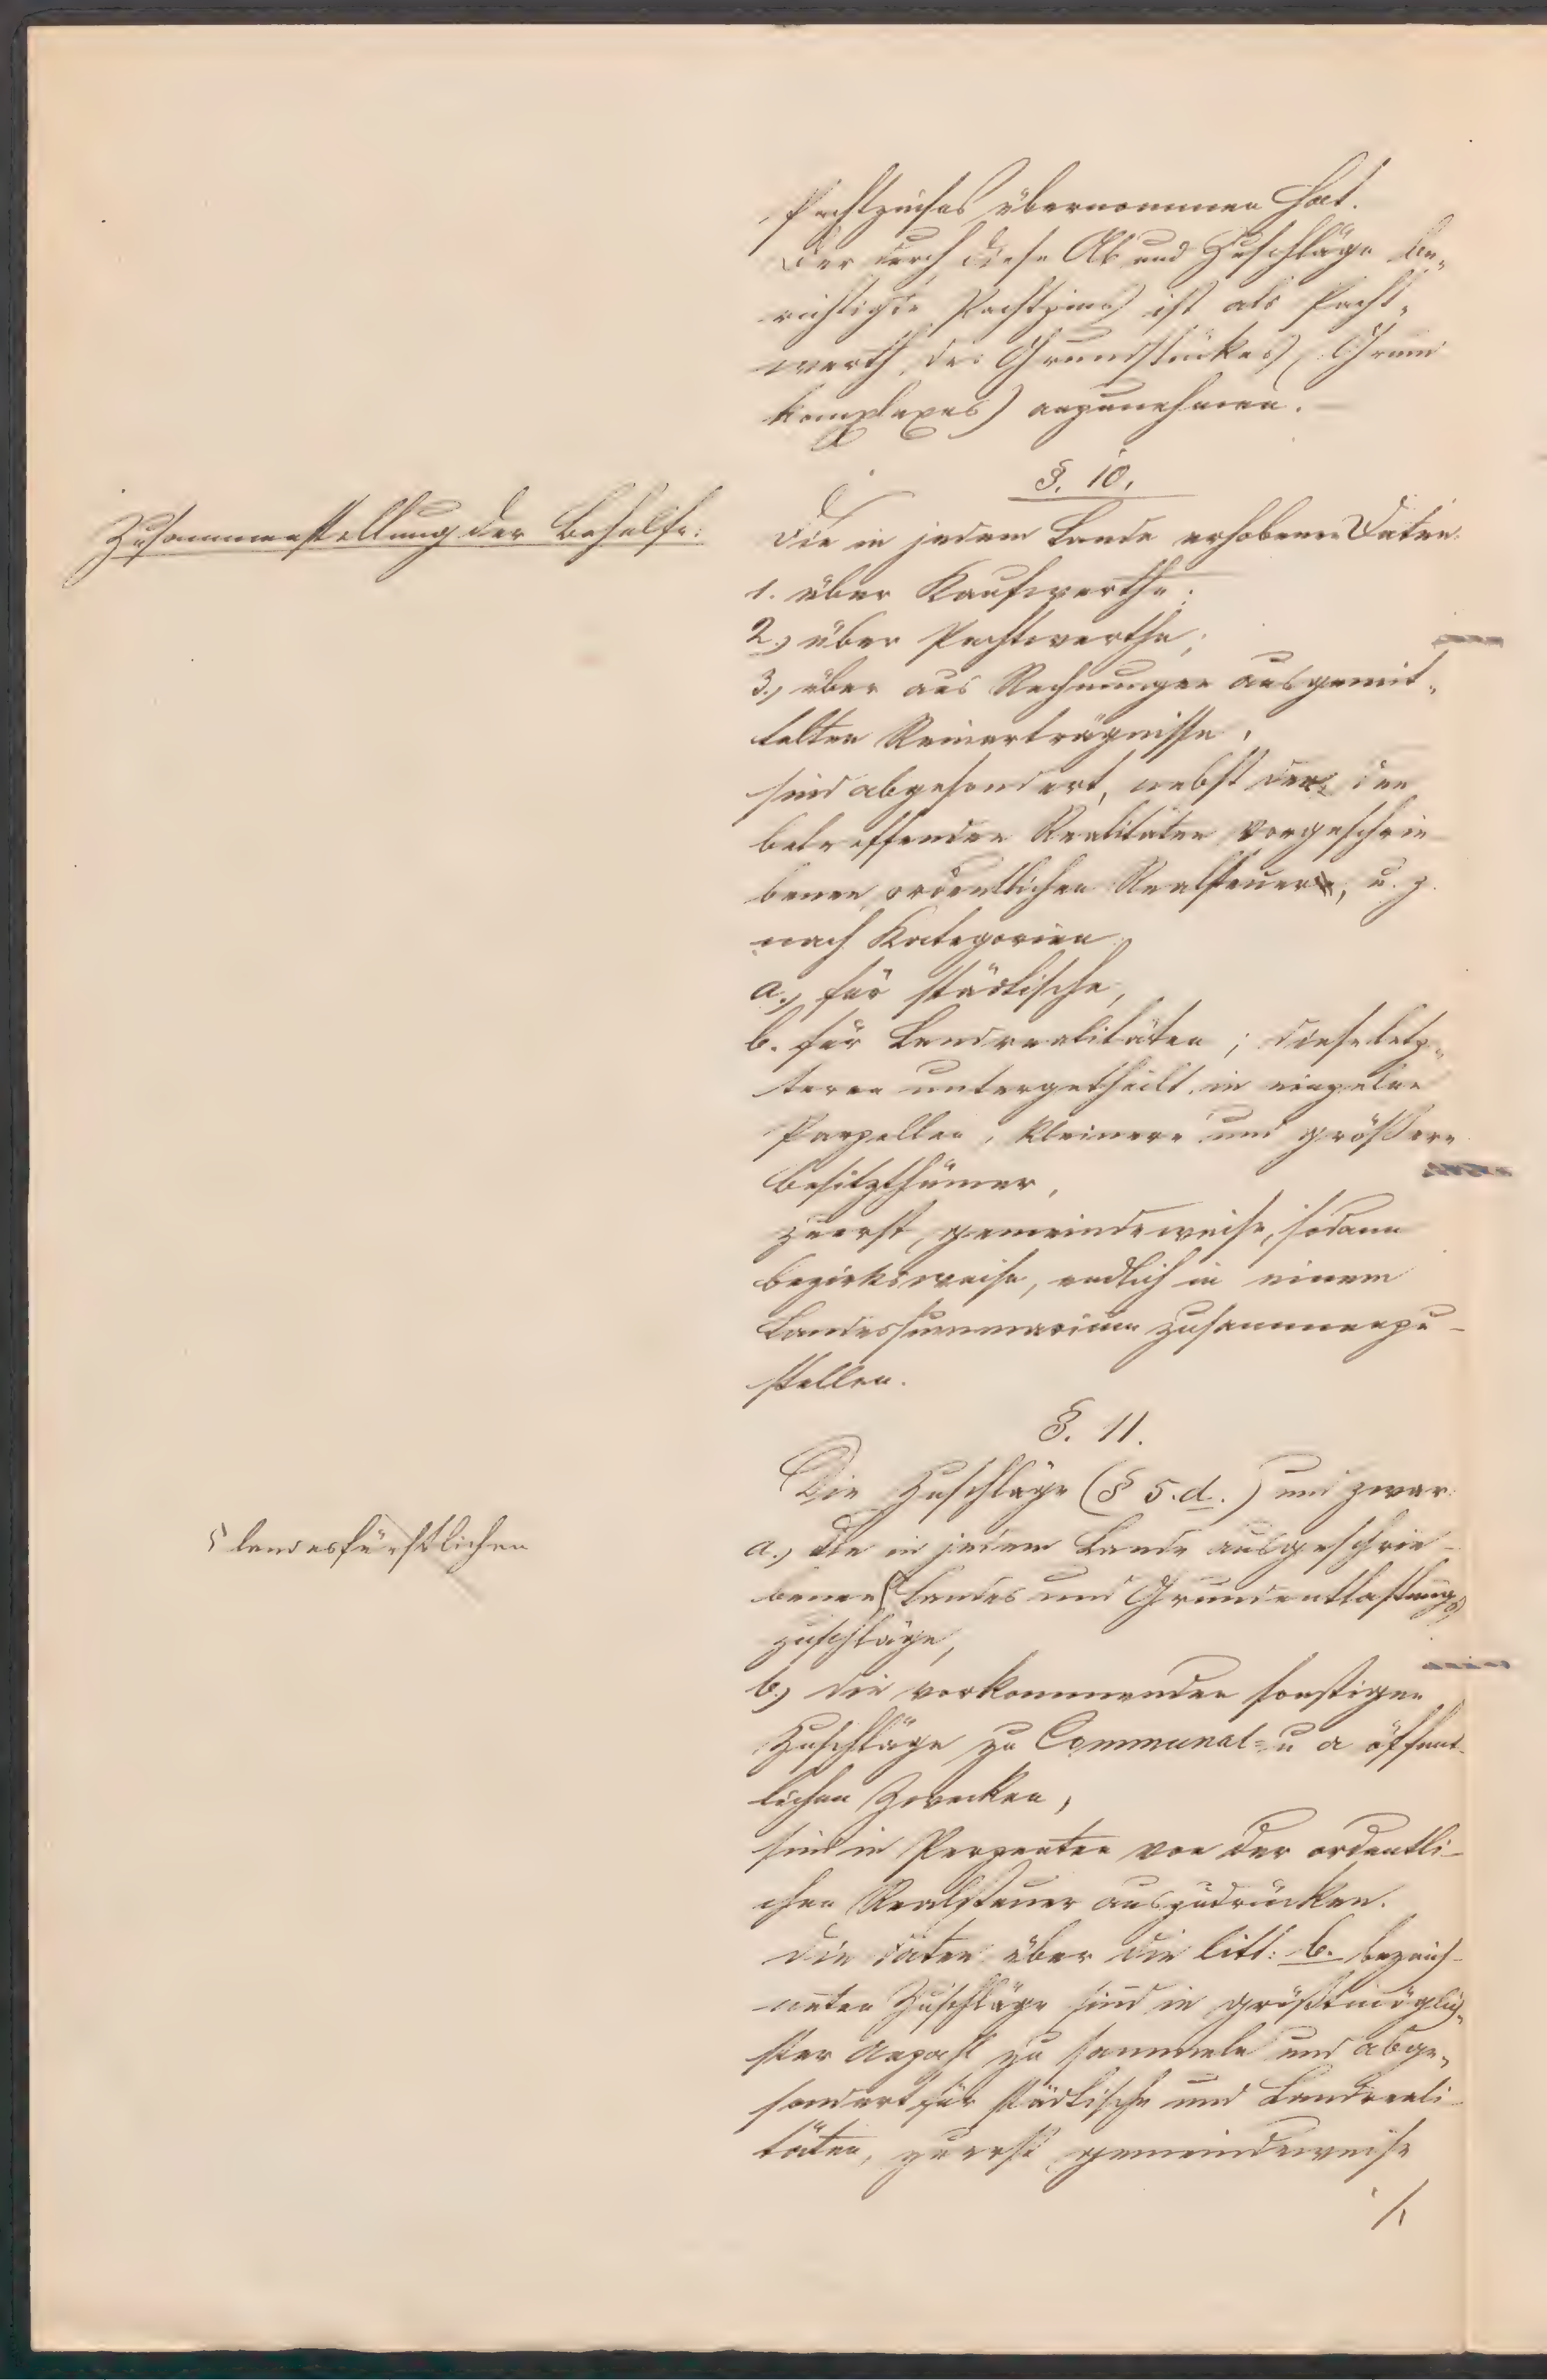 Pachtzinses übernommen hat.
Der durch diese Ab und Zuschläge be„
richtigte Pachtzins ist als Pacht„
werth des Grundstückes (Grund
komplexes) anzunehmen. —
§. 10.
Zusammenstellung der Behelfe:
Die in jedem Lande erhobenen Daten
1. über Kaufwerthe;
2., über Pachtwerthe;
3., über aus Rechnungen ausgemit„
telten Reinerträgnisse,
sind abgesondert, nebst der den
betreffenden Realitäten vorgeschrie
benen ordentlichen Realsteuer, u. z.
nach Kategorien
a., für städtische,
b. für Landrealitäten; diese letz„
teren untergetheilt in einzelne
Parzellen, kleinere und größere
Besitzthümer,
zuerst gemeindeweise, sodann
bezirksweise, endlich in einem
Landessummarium zusammenzu–
stellen.
§. 11.
Die Zuschläge (§ 5.d.) und zwar
a., die in jedem Lande ausgeschrie–
landesfürstlichen
benen Landes und Grundentlastungs
zuschläge,
b., die vorkommenden sonstigen
Zuschläge zu Communal= u a öffent
lichen Zwecken,
sind in Perzenten von der ordentli–
chen Realsteuer auszudrücken.
Die Daten über die litt: b. bezeich–
neten Zuschläge sind in größtmöglich„
ster Anzahl zu sammeln und abge„
sondert für städtische und Landreali–
täten, zuerst gemeindeweise
./.